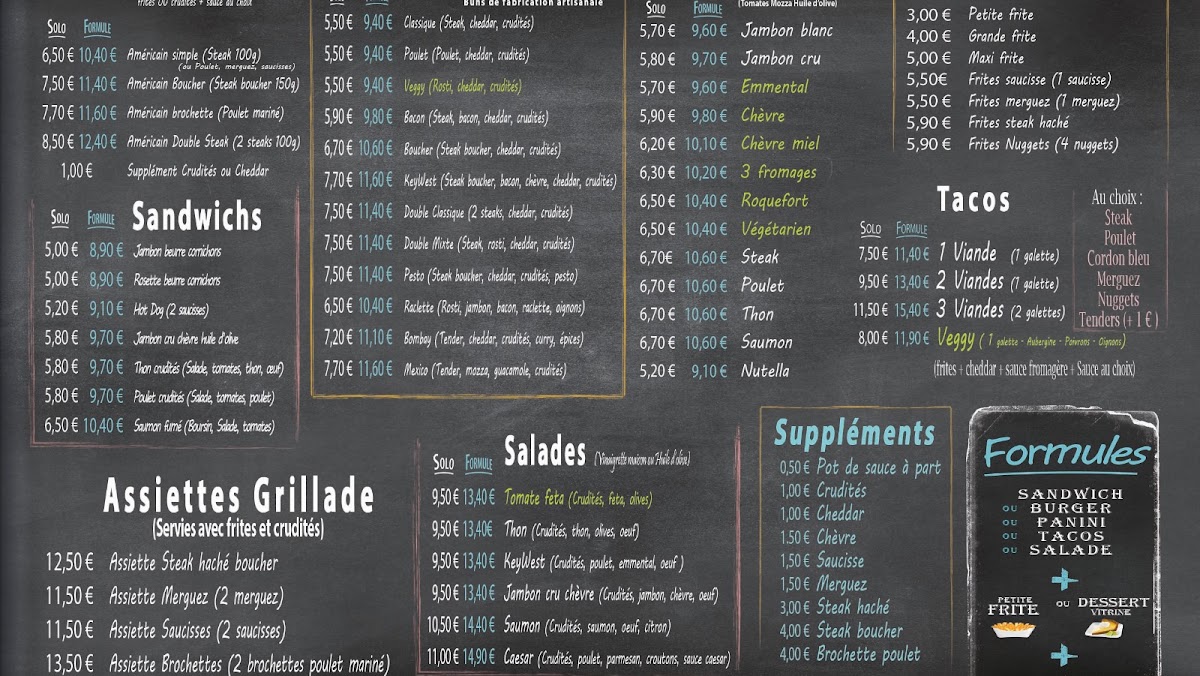 frites OU crudités + sauce au choix
SOLO FORMULE
6,50 € 10,40 € Américain simple (Steak 100g)
(ou Poulet, merguez, saucisses)
7,50 € 11,40 € Américain Boucher (Steak boucher 150g)
7,70 € 11,60 € Américain brochette (Poulet mariné)
8,50 € 12,40 € Américain Double Steak (2 steaks 100g)
1,00 € Supplément Crudités ou Cheddar
Sandwichs
SOLO FORMULE
5,00 € 8,90 € Jambon beurre cornichons
5,00 € 8,90 € Rosette beurre cornichons
5,20 € 9,10 € Hot Dog (2 saucisses)
5,80 € 9,70 € Jambon cru chèvre huile d'olive
5,80 € 9,70 € Thon crudités (Salade, tomates, thon, œuf)
5,80 € 9,70 € Poulet crudités (Salade, tomates, poulet)
6,50 € 10,40 € Saumon fumé (Boursin, Salade, tomates)
Assiettes Grillade
(Servies avec frites et crudités)
12,50 € Assiette Steak haché boucher
11,50 € Assiette Merguez (2 merguez)
11,50 € Assiette Saucisses (2 saucisses)
13,50 € Assiette Brochettes (2 brochettes poulet mariné)
Buns de fabrication artisanale
5,50 € 9,40 € Classique (Steak, cheddar, crudités)
5,50 € 9,40 € Poulet (Poulet, cheddar, crudités)
5,50 € 9,40 € Veggy (Rosti, cheddar, crudités)
5,90 € 9,80 € Bacon (Steak, bacon, cheddar, crudités)
6,70 € 10,60 € Boucher (Steak boucher, cheddar, crudités)
7,70 € 11,60 € KeyWest (Steak boucher, bacon, chèvre, cheddar, crudités)
7,50 € 11,40 € Double Classique (2 steaks, cheddar, crudités)
7,50 € 11,40 € Double Mixte (Steak, rosti, cheddar, crudités)
7,50 € 11,40 € Pesto (Steak boucher, cheddar, crudités, pesto)
6,50 € 10,40 € Raclette (Rosti, jambon, bacon, raclette, oignons)
7,20 € 11,10 € Bombay (Tender, cheddar, crudités, curry, épices)
7,70 € 11,60 € Mexico (Tender, mozza, guacamole, crudités)
Salades (Vinaigrette maison ou Huile d'olive)
SOLO FORMULE
9,50 € 13,40 € Tomate feta (Crudités, feta, olives)
9,50 € 13,40€ Thon (Crudités, thon, olives, oeuf)
9,50 € 13,40 € KeyWest (Crudités, poulet, emmental, oeuf )
9,50 € 13,40 € Jambon cru chèvre (Crudités, jambon, chèvre, oeuf)
10,50 € 14,40 € Saumon (Crudités, saumon, oeuf, citron)
11,00 € 14,90 € Caesar (Crudités, poulet, parmesan, croutons, sauce caesar)
SOLO FORMULE (Tomates Mozza Huile d'olive)
5,70 € 9,60 € Jambon blanc
5,80 € 9,70 € Jambon cru
5,70 € 9,60 € Emmental
5,90 € 9,80 € Chèvre
6,20 € 10,10 € Chèvre miel
6,30 € 10,20 € 3 fromages
6,50 € 10,40 € Roquefort
6,50 € 10,40 € Végétarien
6,70€ 10,60 € Steak
6,70 € 10,60 € Poulet
6,70 € 10,60 € Thon
6,70 € 10,60 € Saumon
5,20 € 9,10 € Nutella
Suppléments
0,50 € Pot de sauce à part
1,00 € Crudités
1,00 € Cheddar
1.50 € Chèvre
1,50 € Saucisse
1,50 € Merguez
3,00 € Steak haché
4,00 € Steak boucher
4,00 € Brochette poulet
3,00 € Petite frite
4,00 € Grande frite
5,00 € Maxi frite
5,50€ Frites saucisse (1 saucisse)
5,50 € Frites merguez (1 merguez)
5,90 € Frites steak haché
5,90 € Frites Nuggets (4 nuggets)
Tacos
SOLO FORMULE
7,50 € 11,40 € 1 Viande (1 galette)
9,50 € 13,40 € 2 Viandes (1 galette)
11,50 € 15,40 € 3 Viandes (2 galettes)
8,00 € 11,90 € Veggy ( 1 galette - Aubergine - Poivrons - Oignons)
(frites + cheddar + sauce fromagère + Sauce au choix)
Au choix :
Steak
Poulet
Cordon bleu
Merguez
Nuggets
Tenders (+ 1 € )
Formules
SANDWICH
OU BURGER
OU PANINI
OU TACOS
OU SALADE
+
PETITE FRITE OU DESSERT VITRINE
+